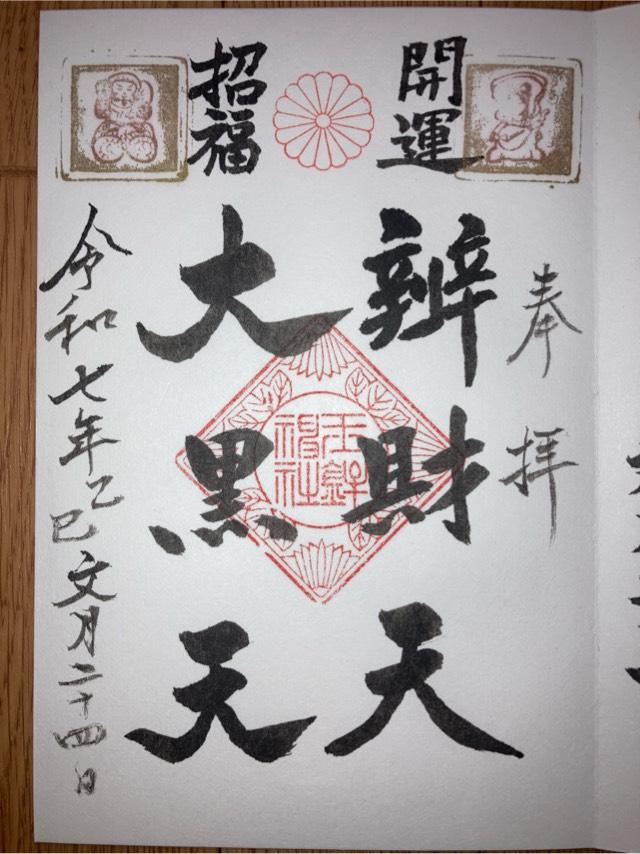 奉拝
開運
辨財天
招福
大黒天
令和七年乙巳文月二十四日